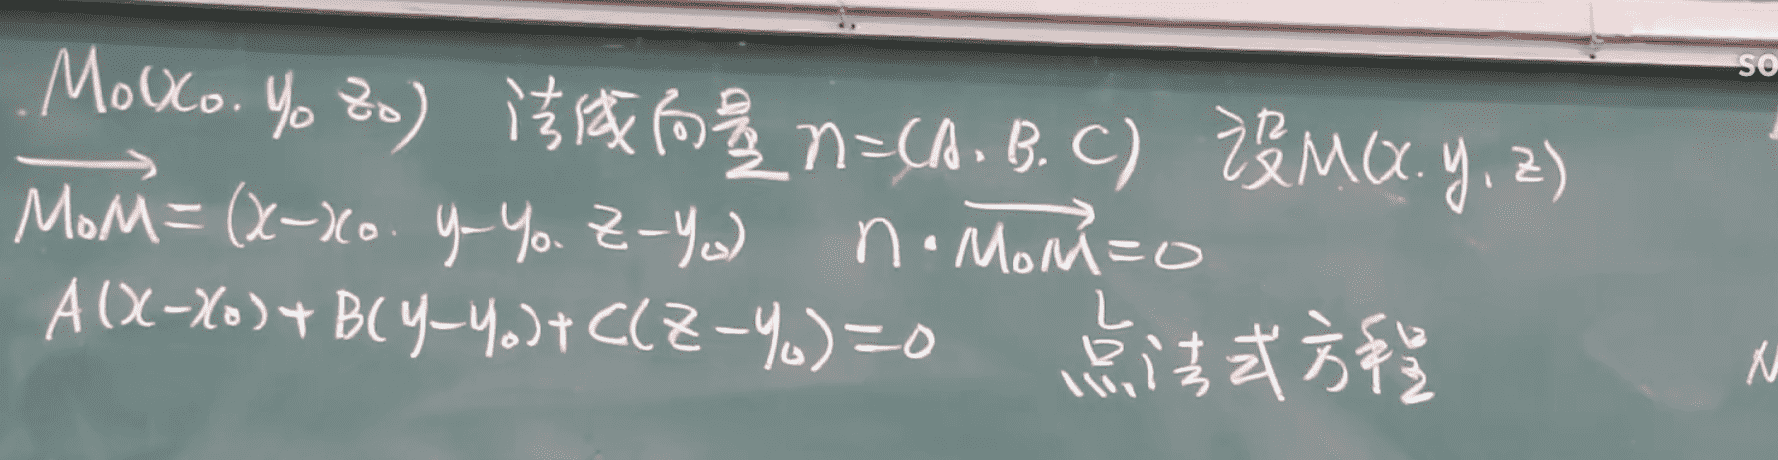 M₀(x₀. y₀ z₀) 法线向量 n=(A. B. C) 设M(x. y, z)
$\overrightarrow{M₀M}$ = (x-x₀. y-y₀. z-y₀) n·$\overrightarrow{M₀M}$=0
A(x-x₀)+B(y-y₀)+C(z-y₀)=0 点法式方程